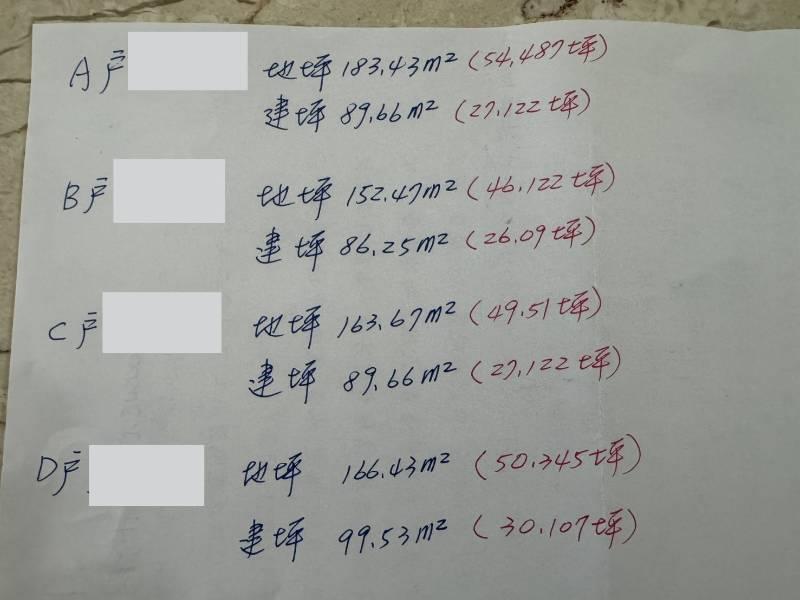 A戶 地坪 183.43m² (54,487坪)
建坪 89.66m² (27.122坪)
B戶 地坪 152.47m² (46.122坪)
建坪 86.25m² (26.09坪)
C戶 地坪 163.67m² (49.51坪)
建坪 89.66m² (27.122坪)
D戶 地坪 166.43m² (50.345坪)
建坪 99.53m² (30.107坪)